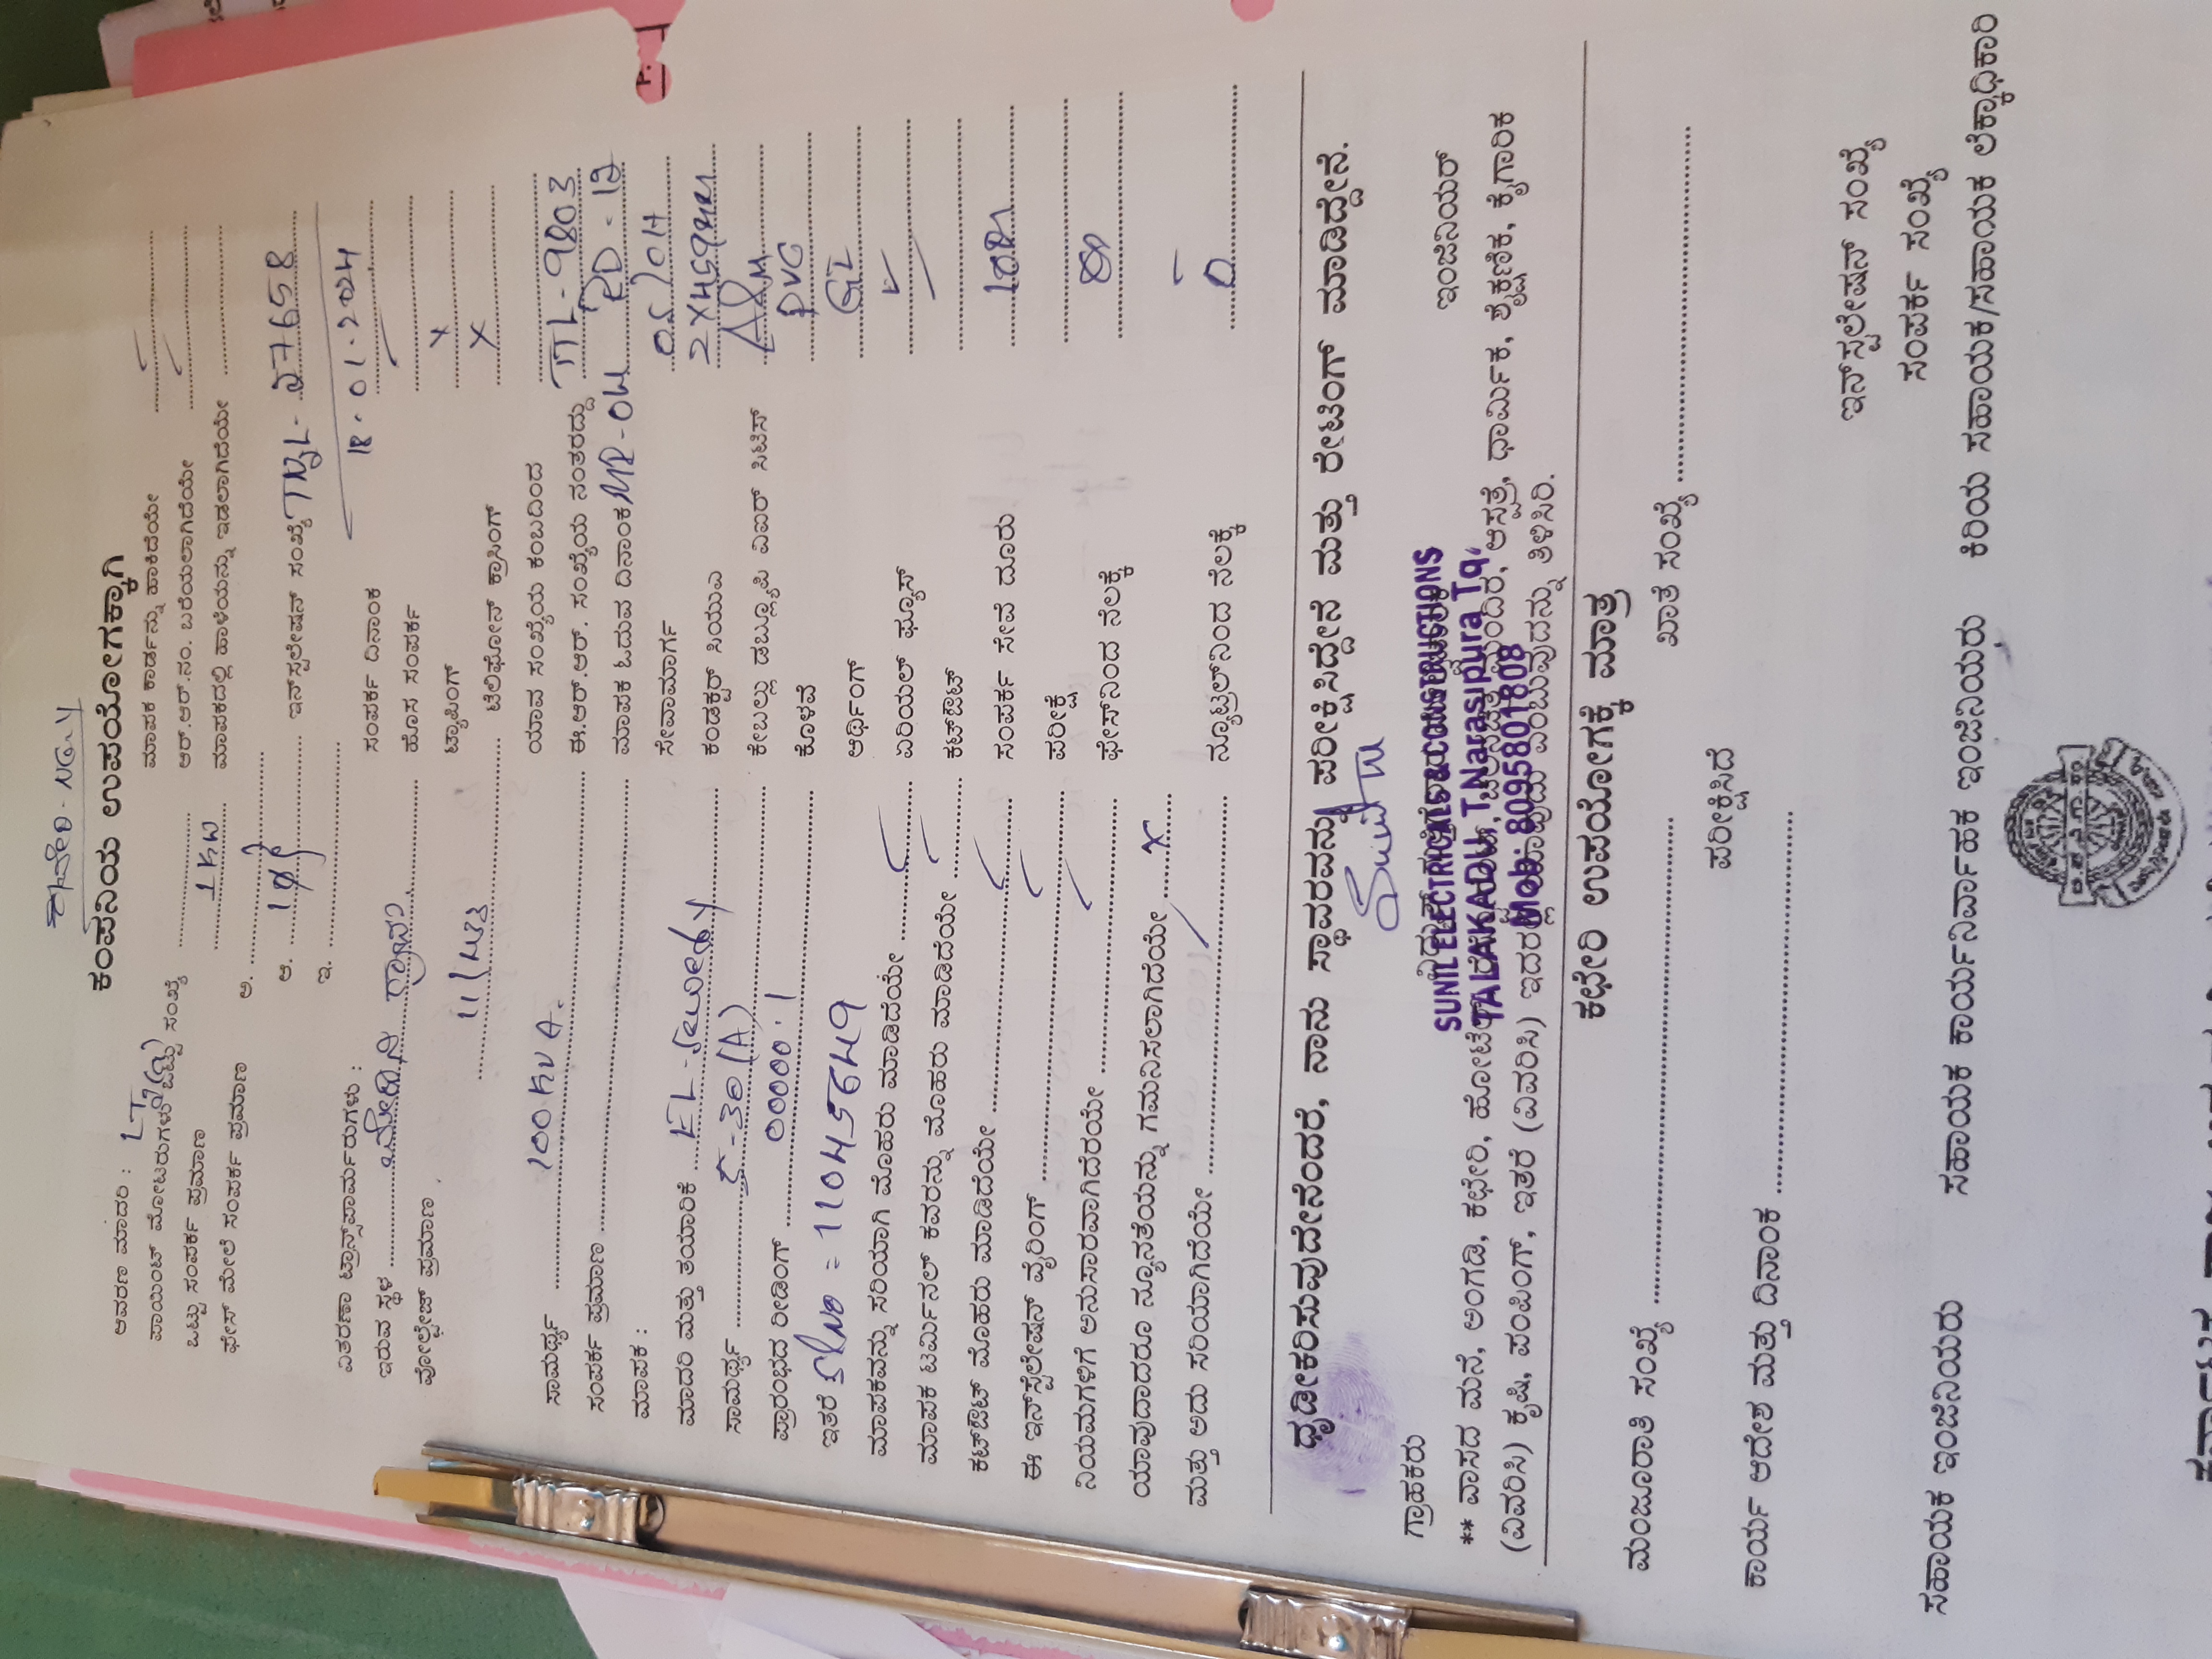 ಕಾವೇರಿ-NGY
ಕಂಪನಿಯ ಉಪಯೋಗಕ್ಕಾಗಿ
ಆವರಣ ಮಾದರಿ : LT
ಪಾಯಿಂಟ್ ಮೋಟರುಗಳ ಒಟ್ಟು ಸಂಖ್ಯೆ
ಒಟ್ಟು ಸಂಪರ್ಕ ಪ್ರಮಾಣ 1KW
ಫೇಸ್ ಮೇಲೆ ಸಂಪರ್ಕ ಪ್ರಮಾಣ ಅ.
ಆ. 1Φ
ಇ.
ವಿತರಣಾ ಟ್ರಾನ್ಸ್‌ಫಾರ್ಮರುಗಳು :
ಇರುವ ಸ್ಥಳ ಗ್ರಾಮ.
ವೋಲ್ಟೇಜ್ ಪ್ರಮಾಣ
ಸಾಮರ್ಥ್ಯ 100 KVA.
ಸಂಪರ್ಕ ಪ್ರಮಾಣ
ಮಾಪಕ :
ಮಾದರಿ ಮತ್ತು ತಯಾರಿಕೆ
ಸಾಮರ್ಥ್ಯ 5-30(A)
ಪ್ರಾರಂಭದ ರೀಡಿಂಗ್ 00000.1
ಇತರೆ SLNO = 110456449
ಮಾಪಕವನ್ನು ಸರಿಯಾಗಿ ಮೊಹರು ಮಾಡಿದೆಯೇ
ಮಾಪಕ ಟರ್ಮಿನಲ್ ಕವರನ್ನು ಮೊಹರು ಮಾಡಿದೆಯೇ
ಕಟ್‌ಔಟ್ ಮೊಹರು ಮಾಡಿದೆಯೇ
ಈ ಇನ್‌ಸ್ಟಲೇಷನ್ ವೈರಿಂಗ್
ನಿಯಮಗಳಿಗೆ ಅನುಸಾರವಾಗಿದೆರಯೇ
ಯಾವುದಾದರೂ ನ್ಯೂನತೆಯನ್ನು ಗಮನಿಸಲಾಗಿದೆಯೇ x
ಮತ್ತು ಅದು ಸರಿಯಾಗಿದೆಯೇ
ಮಾಪಕ ಕಾರ್ಡನ್ನು ಹಾಕಿದೆಯೇ
ಆರ್.ಆರ್.ನಂ. ಬರೆಯಲಾಗಿದೆಯೇ
ಮಾಪಕದಲ್ಲಿ ಹಾಳೆಯನ್ನು ಇಡಲಾಗಿದೆಯೇ
ಇನ್‌ಸ್ಟಲೇಷನ್ ಸಂಖ್ಯೆ TKL-27658
18.01.2024
ಸಂಪರ್ಕ ದಿನಾಂಕ
ಹೊಸ ಸಂಪರ್ಕ
ಟ್ಯಾಪಿಂಗ್ x
ಟೆಲಿಫೋನ್ ಕ್ರಾಸಿಂಗ್ x
ಯಾವ ಸಂಖ್ಯೆಯ ಕಂಬದಿಂದ
ಈ.ಆರ್.ಆರ್. ಸಂಖ್ಯೆಯ ನಂತರದ್ದು TL-9803
ಮಾಪಕ ಓದುವ ದಿನಾಂಕ MR-04 RD-12
ಸೇವಾಮಾರ್ಗ OS/OH
ಕಂಡಕ್ಟರ್ ಸಿಯುಎ
ಕೇಬಲ್ಲು ಡಬ್ಲ್ಯೂಪಿ ಎಐರ್ ಸಿಟಿಸ್
ಕೊಳವೆ PVC
ಅರ್ಥಿಂಗ್ GI
ಏರಿಯಲ್ ಫ್ಯೂಸ್
ಕಟ್‌ಔಟ್
ಸಂಪರ್ಕ ಸೇವೆ ದೂರು
ಪರೀಕ್ಷೆ
ಫೇಸ್‌ನಿಂದ ನೆಲಕ್ಕೆ
ನ್ಯೂಟ್ರಲ್‌ನಿಂದ ನೆಲಕ್ಕೆ 0
ಧೃಡೀಕರಿಸುವುದೇನೆಂದರೆ, ನಾನು ಸ್ಥಾವರವನ್ನು ಪರೀಕ್ಷಿಸಿದ್ದೇನೆ ಮತ್ತು ರೇಟಿಂಗ್ ಮಾಡಿದ್ದೇನೆ.
ಗ್ರಾಹಕರು
ಇಂಜಿನಿಯರ್
SUNIL ELECTRICALS & CONSTRUCTIONS
TALAKADU, T.Narasipura Tq,
Mob: 8095801808
** ವಾಸದ ಮನೆ, ಅಂಗಡಿ, ಕಛೇರಿ, ಹೋಟೆಲ್ ಆಸ್ಪತ್ರೆ, ಧಾರ್ಮಿಕ, ಶೈಕ್ಷಣಿಕ, ಕೈಗಾರಿಕ
(ವಿವರಿಸಿ) ಕೃಷಿ, ಪಂಪಿಂಗ್, ಇತರೆ (ವಿವರಿಸಿ) ಇದರಲ್ಲಿ ಯಾವುದು ಎಂಬುವುದನ್ನು ತಿಳಿಸಿರಿ.
ಕಛೇರಿ ಉಪಯೋಗಕ್ಕೆ ಮಾತ್ರ
ಮಂಜೂರಾತಿ ಸಂಖ್ಯೆ
ಖಾತೆ ಸಂಖ್ಯೆ
ಪರೀಕ್ಷಿಸಿದೆ
ಕಾರ್ಯ ಆದೇಶ ಮತ್ತು ದಿನಾಂಕ
ಇನ್‌ಸ್ಟಲೇಷನ್ ಸಂಖ್ಯೆ
ಸಂಪರ್ಕ ಸಂಖ್ಯೆ
ಸಹಾಯಕ ಇಂಜಿನಿಯರು ಸಹಾಯಕ ಕಾರ್ಯನಿರ್ವಾಹಕ ಇಂಜಿನಿಯರು ಕಿರಿಯ ಸಹಾಯಕ/ಸಹಾಯಕ ಲೆಕ್ಕಾಧಿಕಾರಿ